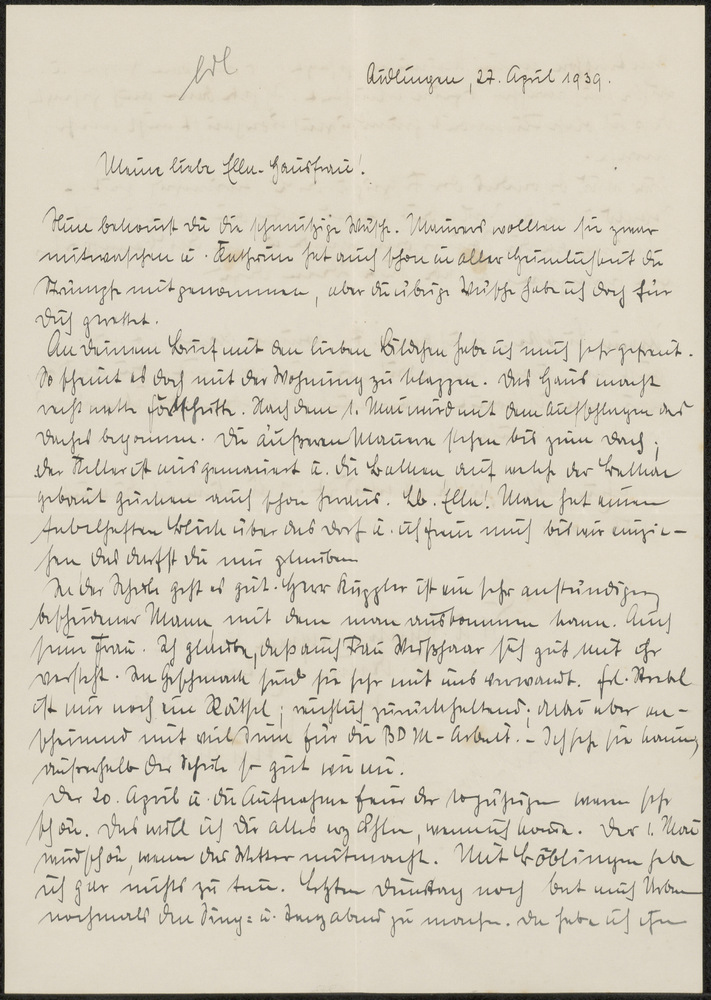 Aidlingen, 27. April 1939.
Meine liebe Elle-Hausfrau!
Hier bekommst Du die schmutzige Wäsche. Maurers wollten sie zwar
mitwaschen u. Kathrine hat auch schon in aller Heimlichkeit die
Strümpfe mitgenommen, aber die übrige Wäsche habe ich doch für
Dich gerettet.
An Deinem Brief mit den lieben Bildchen habe ich mich sehr gefreut.
So scheint es doch mit der Wohnung zu klappen. Das Haus macht
recht nette Fortschritte. Nach dem 1. Mai wird mit dem Aufschlagen des
Daches begonnen. Die äußeren Mauern stehen bis zum Dach;
der Keller ist ausgemauert u. die Balken auf welche der Balkon
gebaut gucken auch schon heraus. Lb. Elle! Man hat einen
fabelhaften Blick über das Dorf u. ich freue mich bis wir einzie-
hen das darfst Du mir glauben.
In der Schule geht es gut. Herr Kuppler ist ein sehr anständiger,
bescheidener Mann mit dem man auskommen kann. Auch
seine Frau. Ich glaube, daß auch Frau Weißhaar sich gut mit ihr
versteht. Im Geschmack sind sie sehr mit uns verwandt. Frl. Strebel
ist mir noch ein Rätsel; reichlich zurückhaltend; dabei aber an-
scheinend mit viel Sinn für die BDM-Arbeit. - Ich sehe sie kaum
außerhalb der Schule so gut wie nie.
Der 20. April u. die Aufnahmefeier der 10jährigen waren sehr
schön. Das will ich Dir alles erzählen, wenn ich komme. Der 1. Mai
wird schön, wenn das Wetter mitmacht. Mit Böblingen habe
ich gar nichts zu tun. Letzten Dienstag noch bat mich Urban
nochmals den Sing- u. Tanzabend zu machen. Da habe ich ihm